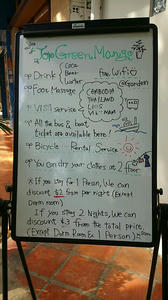 Top Green Mango
Drink Coca
Beer
Water
Free Wifi
@Garden
Foot Massage
CAMBODIA
THAILAND
LAOS
VIETNAM
VISA service
All the bus & boat
ticket are available here!
Bicycle Rental Service
You can dry your clothes at 2 floor.
※ If you stay for 1 Person, We can
discount $2 from per night (Except
Dorm room)
If you stay 2 Nights, We can
discount $3 from the total price
(Except Dorm Room & 1 Person)